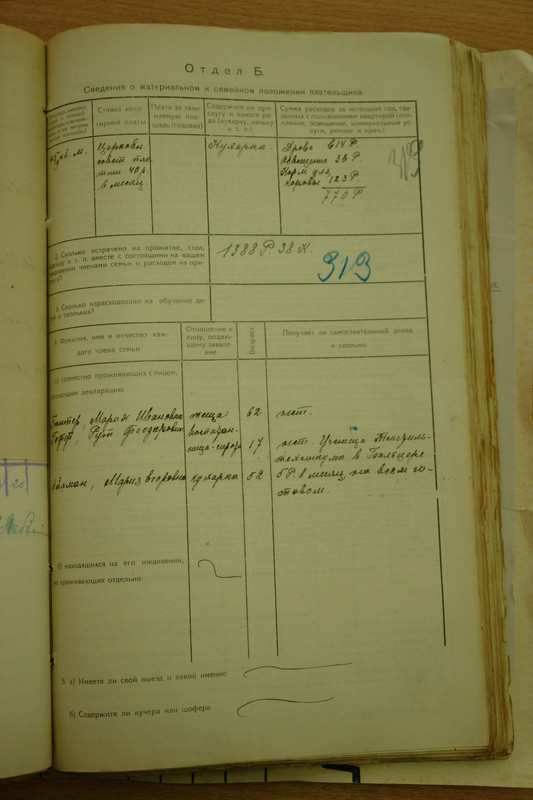 Отдел Б.
Сведения о материальном и семейном положении плательщика.
Ставка квар-
тирной платы
Плата за зани-
маемую пло-
щадь (годовая)
Содержите ли при-
слугу и какого ро-
да (кухарку, няньку
и т. п.)
Сумма расходов за истекший год, свя-
занных с пользованием квартирой (ото-
пление, освещение, коммунальные ус-
луги, ремонт и проч.)
45 кв. м.
Церковн.
совет пла-
тил 40 р.
в месяц.
Кухарка
Дрова 614 Р.
Освещение 36 Р.
Корм для
коровы 123 Р.
770 Р.
313
2. Сколько истрачено на прожитие, стол,
одежду и т. п. вместе с состоящими на вашем
иждивении членами семьи и расходом на при-
слугу?
1388 Р. 38 К.
313
3. Сколько израсходовано на обучение де-
тей и скольких?
4. Фамилия, имя и отчество каж-
дого члена семьи
Отношение к
лицу, подаю-
щему заявле-
ние
Возраст
Получает ли самостоятельный доход
и сколько
а) совместно проживающих с лицом,
подающим декларацию
Мария Ивановна
теща
62
нет.
Рут Феодоровна
воспитан-
ница-сирота
17
нет. Ученица
техникума в
Мария Егоровна
кухарка
52
5 Р. в месяц, на всем го-
товом.
б) находящихся на его иждивении,
но проживающих отдельно
5. а) Имеете ли свой выезд и какой именно
б) Содержите ли кучера или шофера
20